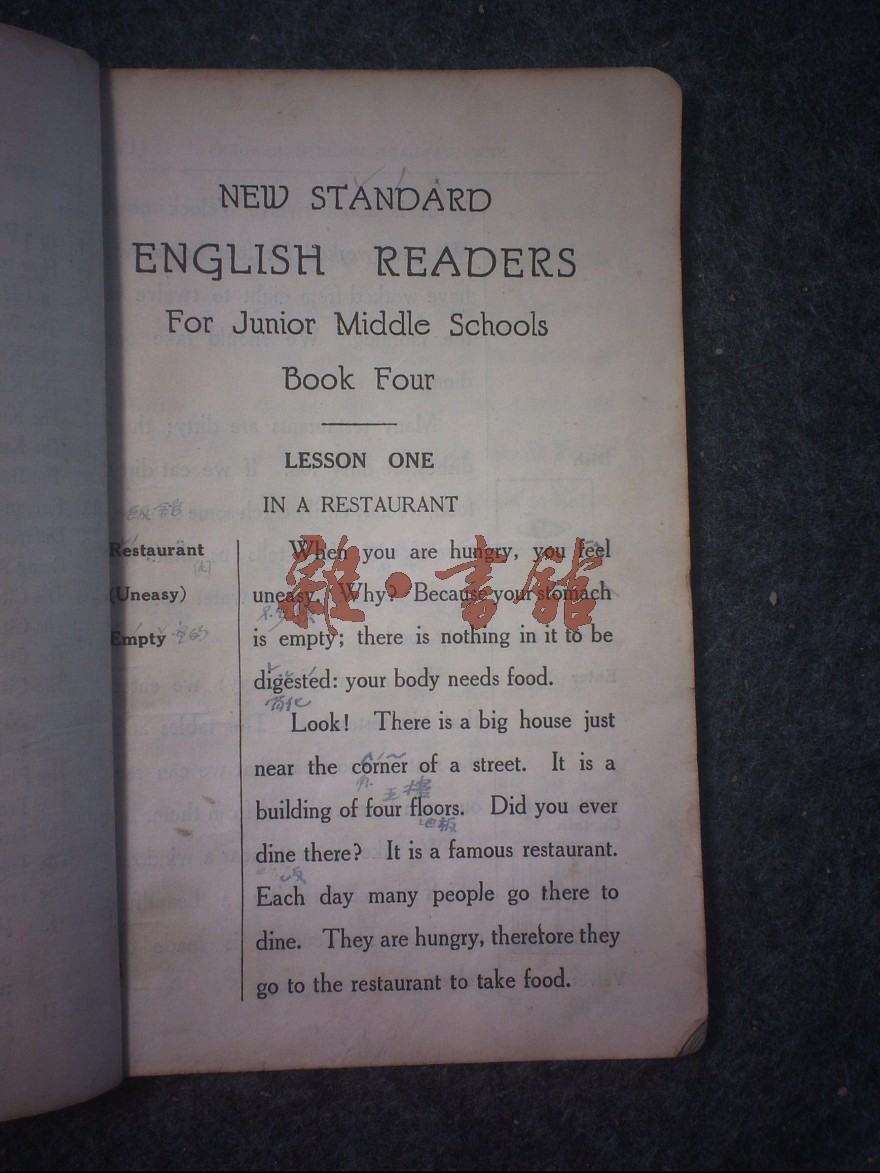 NEW STANDARD
ENGLISH READERS
For Junior Middle Schools
Book Four
LESSON ONE
IN A RESTAURANT
Restaurant
(Uneasy)
Empty
When you are hungry, you feel
uneasy. Why? Because your stomach
is empty; there is nothing in it to be
digested: your body needs food.
Look! There is a big house just
near the corner of a street. It is a
building of four floors. Did you ever
dine there? It is a famous restaurant.
Each day many people go there to
dine. They are hungry, therefore they
go to the restaurant to take food.
雜·書館
地板